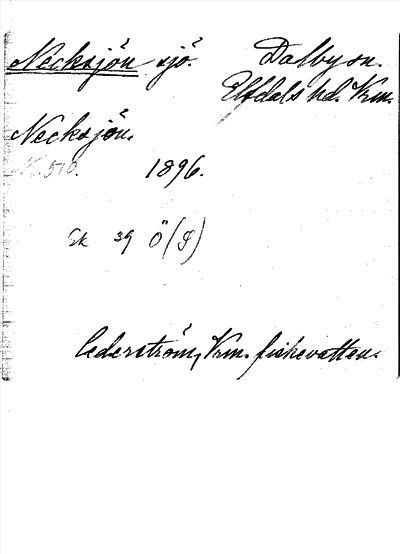 Necksjön sjö. Dalby sn.
Elfdals hd. Vrm.
Necksjön.
N. 510. 1896.
Ek 39 Ö (S)
Cederström, Vrm. fiskevatten.